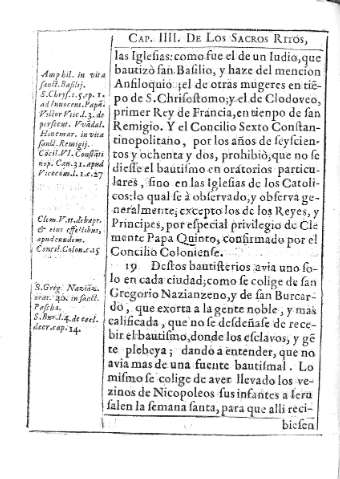 CAP. IIII. DE LOS SACROS RITOS,
las Iglesias: como fue el de un Iudio, que
bautizò san Basilio, y haze del mencion
Anfiloquio: el de otras mugeres en tiẽ-
po de S. Chrisostomo; y el de Clodoveo,
primer Rey de Francia, en tienpo de san
Remigio. Y el Concilio Sexto Constan-
tinopolitano, por los años de seyscien-
tos y ochenta y dos, prohibiò, que no se
diesse el bautismo en oratorios particu-
lares, sino en las Iglesias de los Catoli-
cos: lo qual se à observado, y observa ge-
neralmente; excepto los de los Reyes, y
Principes, por especial privilegio de Cle
mente Papa Quinto, confirmado por el
Concilio Coloniense.
19 Destos bautisterios avia uno so-
lo en cada ciudad; como se colige de san
Gregorio Nazianzeno, y de san Burcar-
do, que exorta a la gente noble, y mas
calificada, que no se desdeñase de rece-
bir el bautismo, donde los esclavos, y gẽ
te plebeya; dando a entender, que no
avia mas de una fuente bautismal. Lo
mismo se colige de aver llevado los ve-
zinos de Nicopoleos sus infantes a Iera
salen la semana santa, para que alli reci-
biesen
Amphil. in vita
sanct. Basilij.
S. Chrys. t. 5. ep. 1.
ad Innocent. Papã.
Victor Utic. l. 3. de
persecut. Vvndal.
Hincmar. in vita
sanct. Remigij.
Cõcil. VI. Constãti
nop. Can. 31. apud
27
Clem. V. tt. de bapt.
& eius effectibus,
apud eundem.
Concil. Colon. c. 15
S. Greg. Naziãz.
orat. 40. in sanct.
Pascha.
S. Bur. l. 4. de
decr. cap. 14.